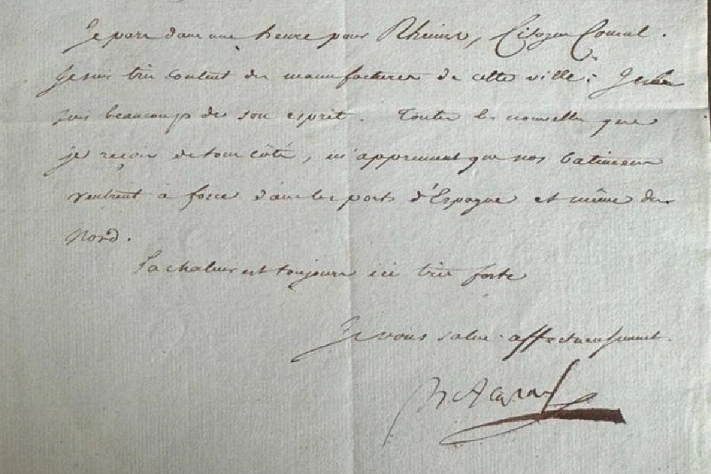 Je pars dans une heure pour Rheims, Citoyen Consul.
Je suis très content des manufactures de cette ville; Je le
suis beaucoup de son esprit. Toutes les nouvelles que
je reçois de tous côtés, m'apprennent que nos bâtimens
rentrent à force dans les ports d'Espagne et même du
Nord.
La chaleur est toujours ici très forte
Je vous salue affectueusement.